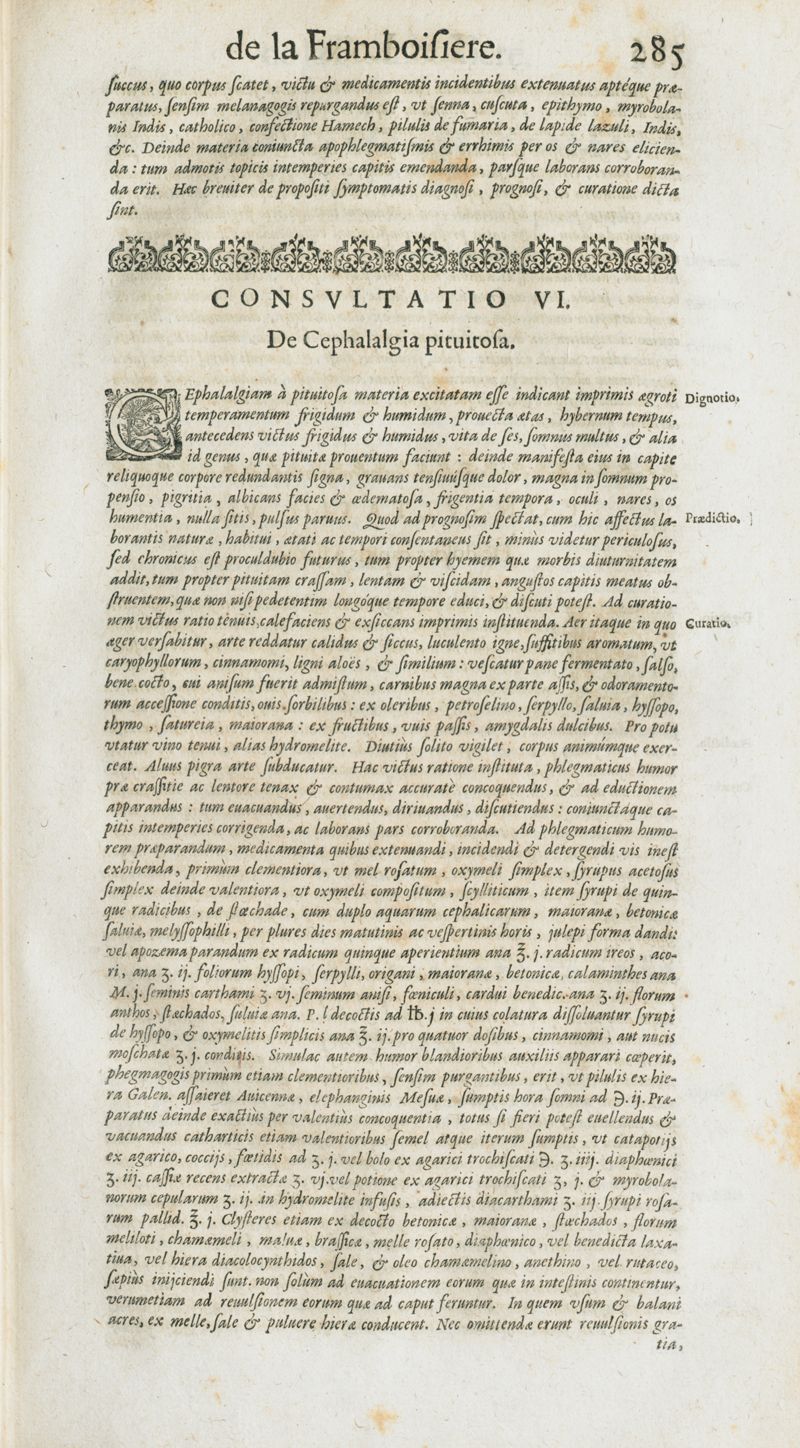 de la Framboiſiere. 285
ſuccus, quo corpus ſcatet, victu & medicamentis incidentibus extenuatus aptéque præ-
paratus, ſenſim melanagogis repurgandus eſt, vt ſenna, cuſcuta, epithymo, myrobola-
nis Indis, catholico, confectione Hamech, pilulis de fumaria, de lapide lazuli, Indis,
&c. Deinde materia coniuncta apophlegmatiſmis & errhinis per os & nares elicien-
da : tum admotis topicis intemperies capitis emendanda, parſque laborans corroboran-
da erit. Hæc breuiter de propoſiti ſymptomatis diagnoſi, prognoſi, & curatione dicta
ſint.
CONSVLTATIO VI.
De Cephalalgia pituitoſa.
CEphalalgiam à pituitoſa materia excitatam eſſe indicant imprimis ægroti Dignotio.
temperamentum frigidum & humidum, prouecta ætas, hybernum tempus,
antecedens victus frigidus & humidus, vita de ſes, ſomnus multus, & alia
id genus, quæ pituitæ prouentum faciunt : deinde manifeſta eius in capite
reliquoque corpore redundantis ſigna, grauans tenſiuúſque dolor, magna in ſomnum pro-
penſio, pigritia, albicans facies & œdematoſa, frigentia tempora, oculi, nares, os
humentia, nulla ſitis, pulſus paruus. Quod ad prognoſim ſpectat, cum hic affectus la- Prædictio.
borantis naturæ, habitui, ætati ac tempori conſentaneus ſit, minùs videtur periculoſus,
ſed chronicus eſt proculdubio futurus, tum propter hyemem quæ morbis diuturnitatem
addit, tum propter pituitam craſſam, lentam & viſcidam, anguſtos capitis meatus ob-
ſtruentem, quæ non niſi pedetentim longóque tempore educi, & diſcuti poteſt. Ad curatio-
nem victus ratio tenuis, calefaciens & exſiccans imprimis inſtituenda. Aer itaque in quo Curatio.
æger verſabitur, arte reddatur calidus & ſiccus, luculento igne, ſuffitibus aromatum, vt
caryophyllorum, cinnamomi, ligni aloës, & ſimilium : veſcatur pane fermentato, ſalſo,
bene cocto, cui aniſum fuerit admiſtum, carnibus magna ex parte aſſis, & odoramento-
rum acceſſione conditis, ouis ſorbilibus : ex oleribus, petroſelino, ſerpyllo, ſaluia, hyſſopo,
thymo, ſatureia, maiorana : ex fructibus, vuis paſſis, amygdalis dulcibus. Pro potu
vtatur vino tenui, alias hydromelite. Diutiùs ſolito vigilet, corpus animúmque exer-
ceat. Aluus pigra arte ſubducatur. Hac victus ratione inſtituta, phlegmaticus humor
præ craſſitie ac lentore tenax & contumax accuratè concoquendus, & ad eductionem
apparandus : tum euacuandus, auertendus, diriuandus, diſcutiendus : coniunctaque ca-
pitis intemperies corrigenda, ac laborans pars corroboranda. Ad phlegmaticum humo-
rem præparandum, medicamenta quibus extenuandi, incidendi & detergendi vis ineſt
exhibenda, primùm clementiora, vt mel roſatum, oxymeli ſimplex, ſyrupus acetoſus
ſimplex deinde valentiora, vt oxymeli compoſitum, ſcylliticum, item ſyrupi de quin-
que radicibus, de ſtœchade, cum duplo aquarum cephalicarum, maioranæ, betonicæ
ſaluiæ, melyſſophilli, per plures dies matutinis ac veſpertinis horis, julepi forma dandi:
vel apozema parandum ex radicum quinque aperientium ana ℥. j. radicum ireos, aco-
ri, ana ʒ. ij. foliorum hyſſopi, ſerpylli, origani, maioranæ, betonicæ, calaminthes ana
M. j. ſeminis carthami ʒ. vj. ſeminum aniſi, fœniculi, cardui benedic. ana ʒ. ij. florum
anthos, ſtœchados, ſaluiæ ana. P. l decoctis ad ℔.j in cuius colatura diſſoluantur ſyrupi
de hyſſopo, & oxymelitis ſimplicis ana ℥. ij. pro quatuor doſibus, cinnamomi, aut nucis
moſchatæ ʒ. j. conditis. Simulac autem humor blandioribus auxiliis apparari cœperit,
phegmagogis primùm etiam clementioribus, ſenſim purgantibus, erit, vt pilulis ex hie-
ra Galen. aſſaieret Auicennæ, elephanginis Meſuæ, ſumptis hora ſomni ad ℈. ij. Præ-
paratus deinde exactiùs per valentiùs concoquentia, totus ſi fieri poteſt euellendus &
vacuandus catharticis etiam valentioribus ſemel atque iterum ſumptis, vt catapotijs
ex agarico, coccijs, fœtidis ad ʒ. j. vel bolo ex agarici trochiſcati ℈. ʒ. iiij. diaphœnici
ʒ. iij. caſſiæ recens extractæ ʒ. vj. vel potione ex agarici trochiſcati ʒ, j. & myrobola-
norum cepularum ʒ. ij. in hydromelite infuſis, adiectis diacarthami ʒ. iij. ſyrupi roſa-
rum pallid. ℥. j. Clyſteres etiam ex decocto betonicæ, maioranæ, ſtœchados, florum
meliloti, chamæmeli, maluæ, braſſicæ, melle roſato, diaphœnico, vel benedicta laxa-
tiua, vel hiera diacolocynthidos, ſale, & oleo chamæmelino, anethino, vel rutaceo,
ſæpiùs inijciendi ſunt. non ſolùm ad euacuationem eorum quæ in inteſtinis continentur,
verumetiam ad reuulſionem eorum quæ ad caput feruntur. In quem vſum & balani
acres, ex melle, ſale & puluere hieræ conducent. Nec omittenda erunt reuulſionis gra-
tia,